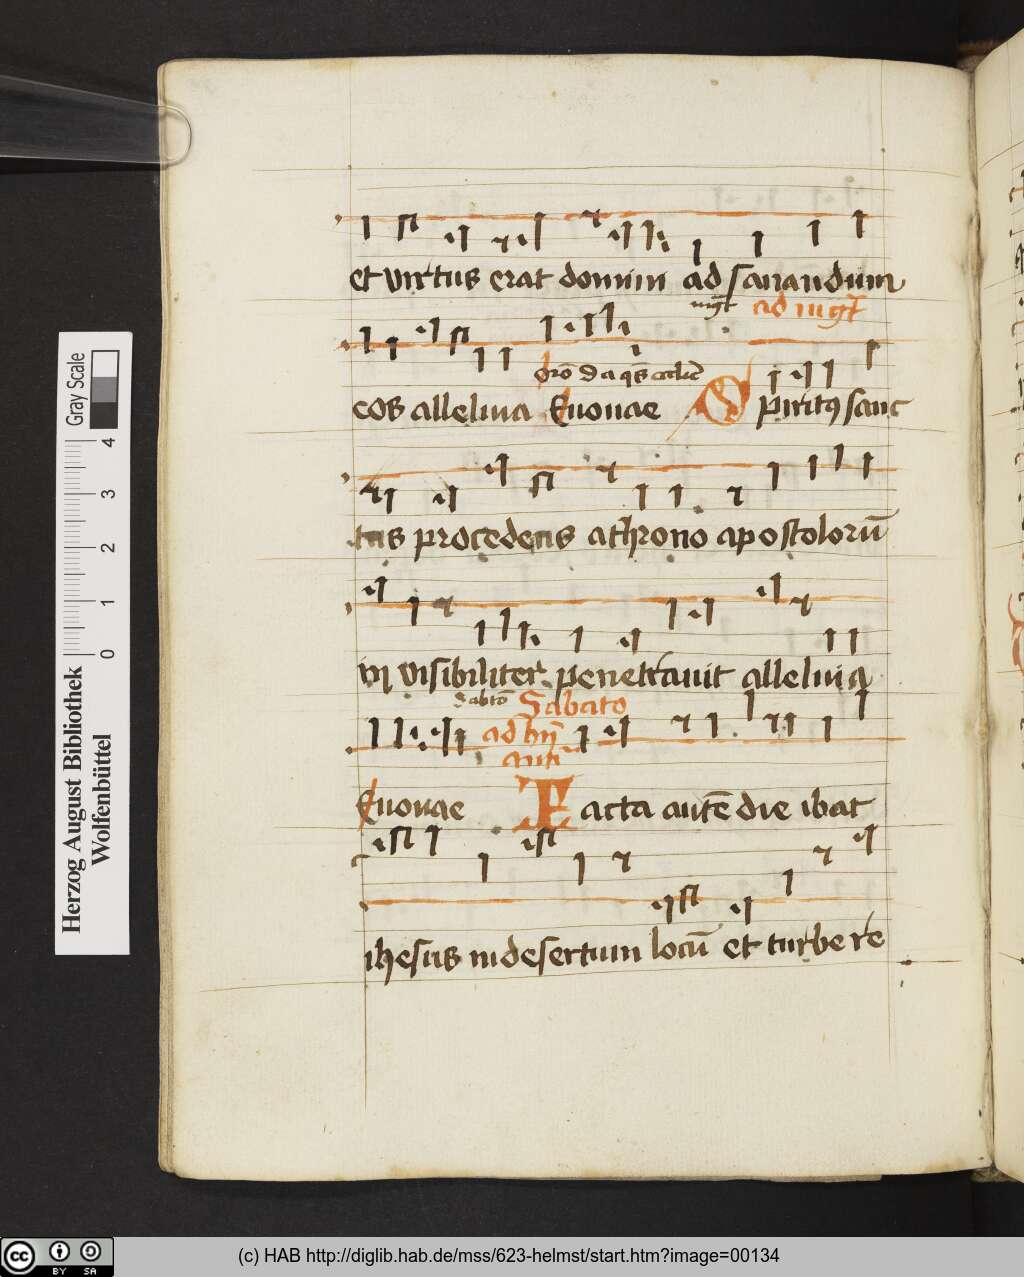 et virtus erat domini ad sanandum
mgt ad mgt
oro Da qs eccl
cos alleluia Euouae Spiritq sanc
tus procedens a throno apostolorū
in visibiliter penetrauit alleluia
Sabto Sabato
ad bn
anti
Euouae Facta autē die ibat
ihesus in desertum locū et turbe re
Gray Scale
4
3
2
1
0
Herzog August Bibliothek
Wolfenbüttel
cc BY SA
(c) HAB http://diglib.hab.de/mss/623-helmst/start.htm?image=00134